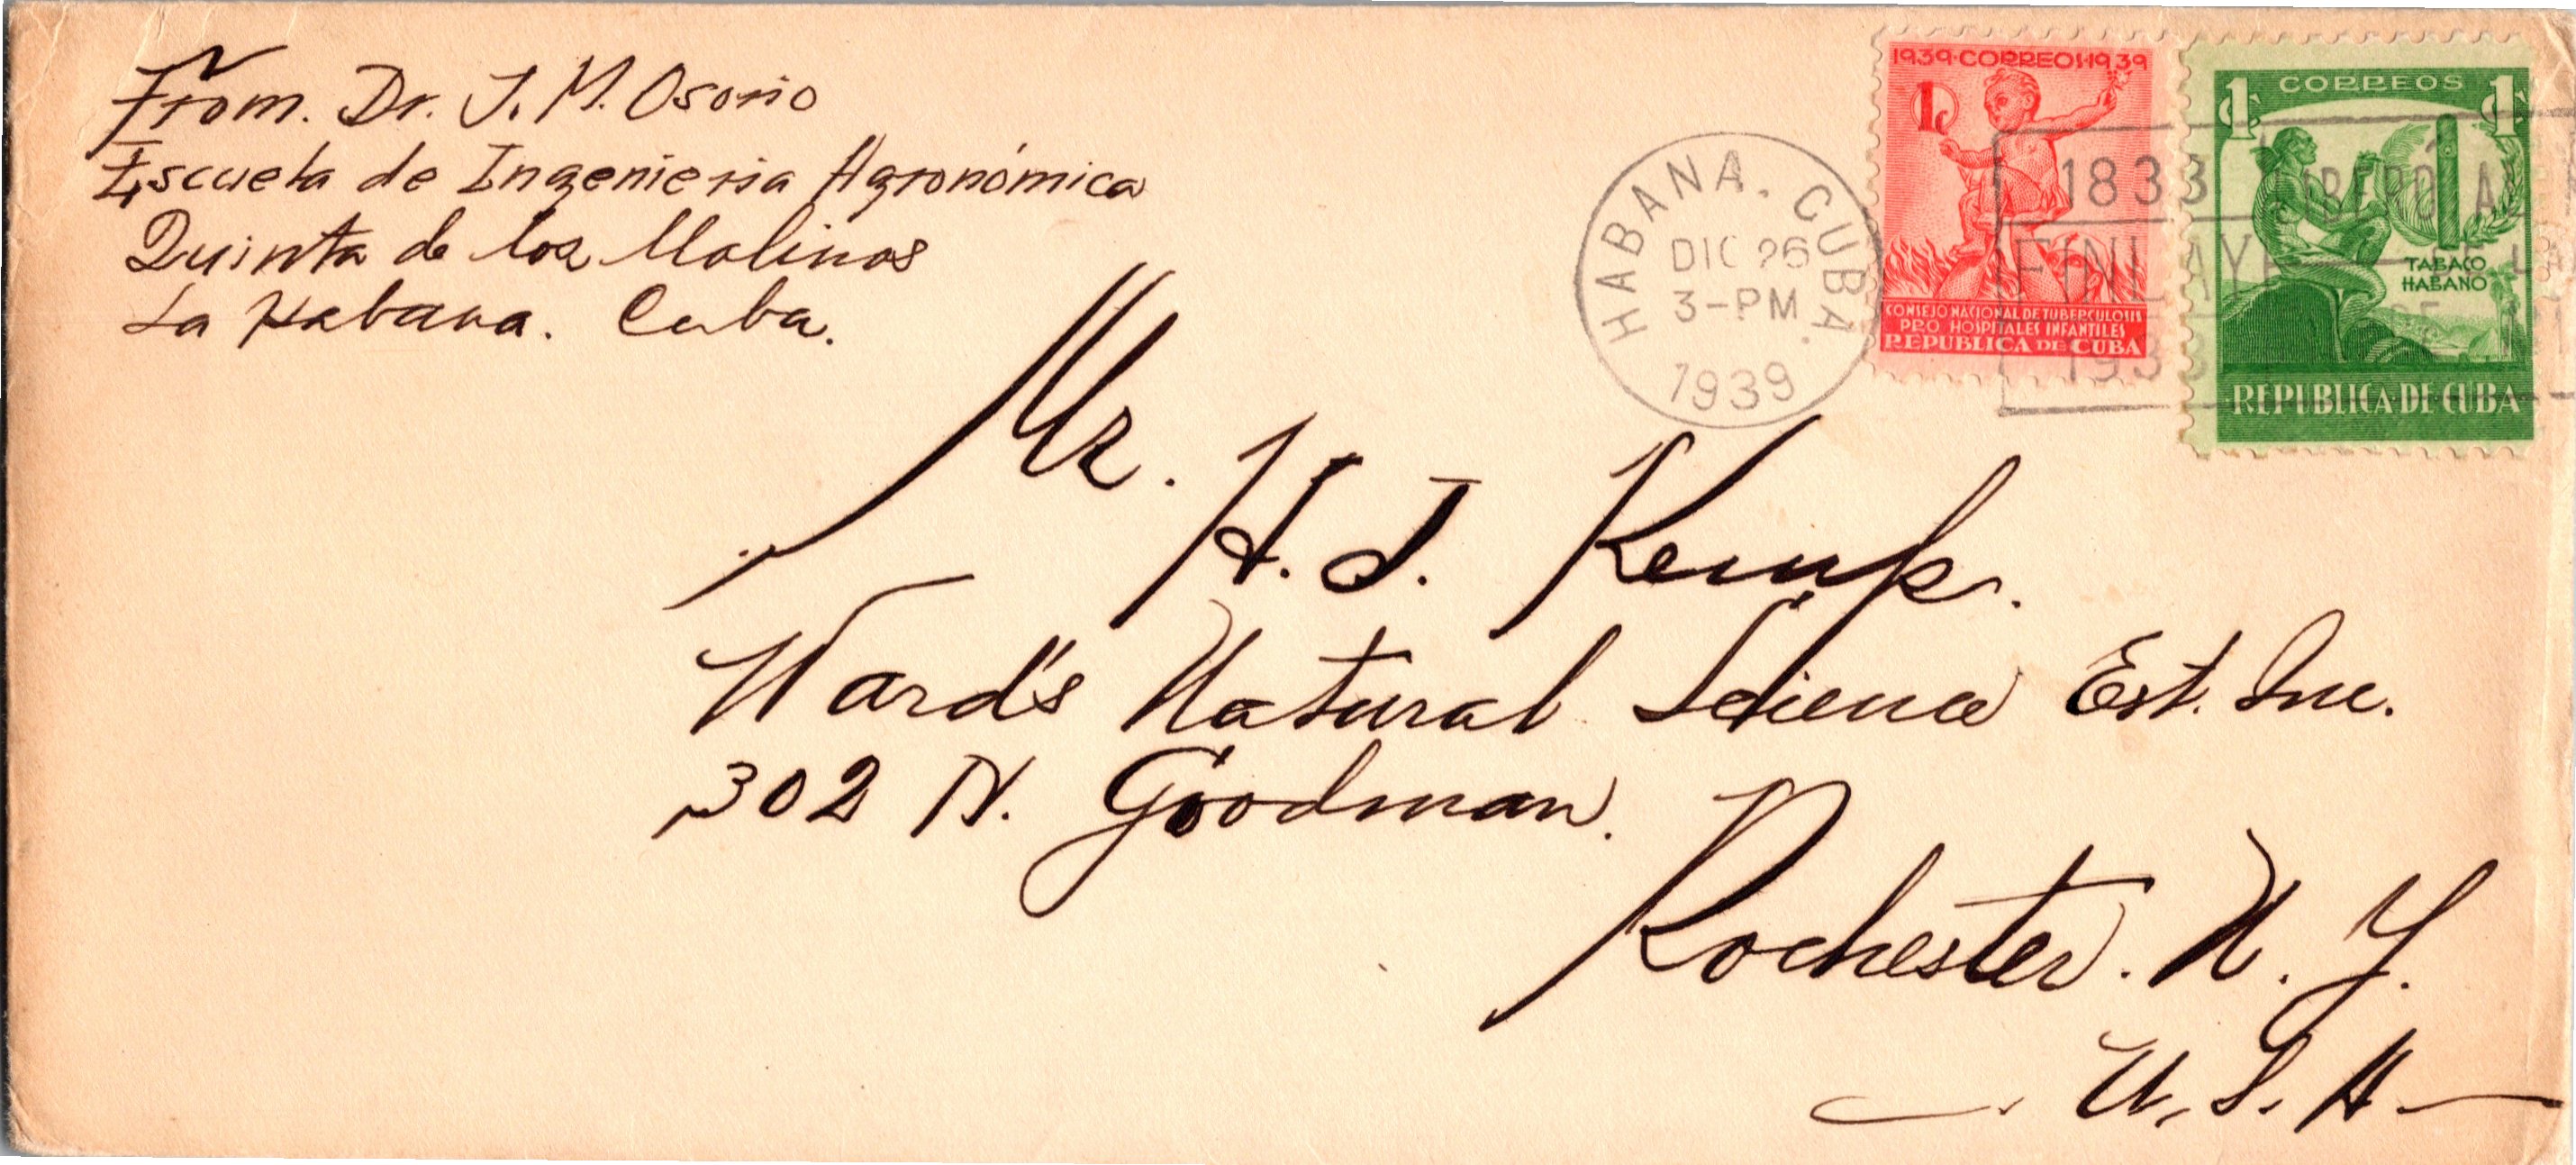 From. Dr. J. M. Osorio
Escuela de Ingenieria Agronómica
Quinta de los Molinos
La Habana. Cuba.
HABANA, CUBA.
DIC 26
3-PM
1939
1939·CORREOS·1939
1c
CONSEJO NACIONAL DE TUBERCULOSIS
PRO HOSPITALES INFANTILES
REPUBLICA DE CUBA
CORREOS
1c 1c
TABACO
HABANO
REPUBLICA·DE·CUBA
1833 LIBERÓ A
FINLAY DE LA
1933
Mr. H. J. Kemp.
Ward's Natural Science Est. Inc.
302 N. Goodman.
Rochester. N. Y.
U. S. A